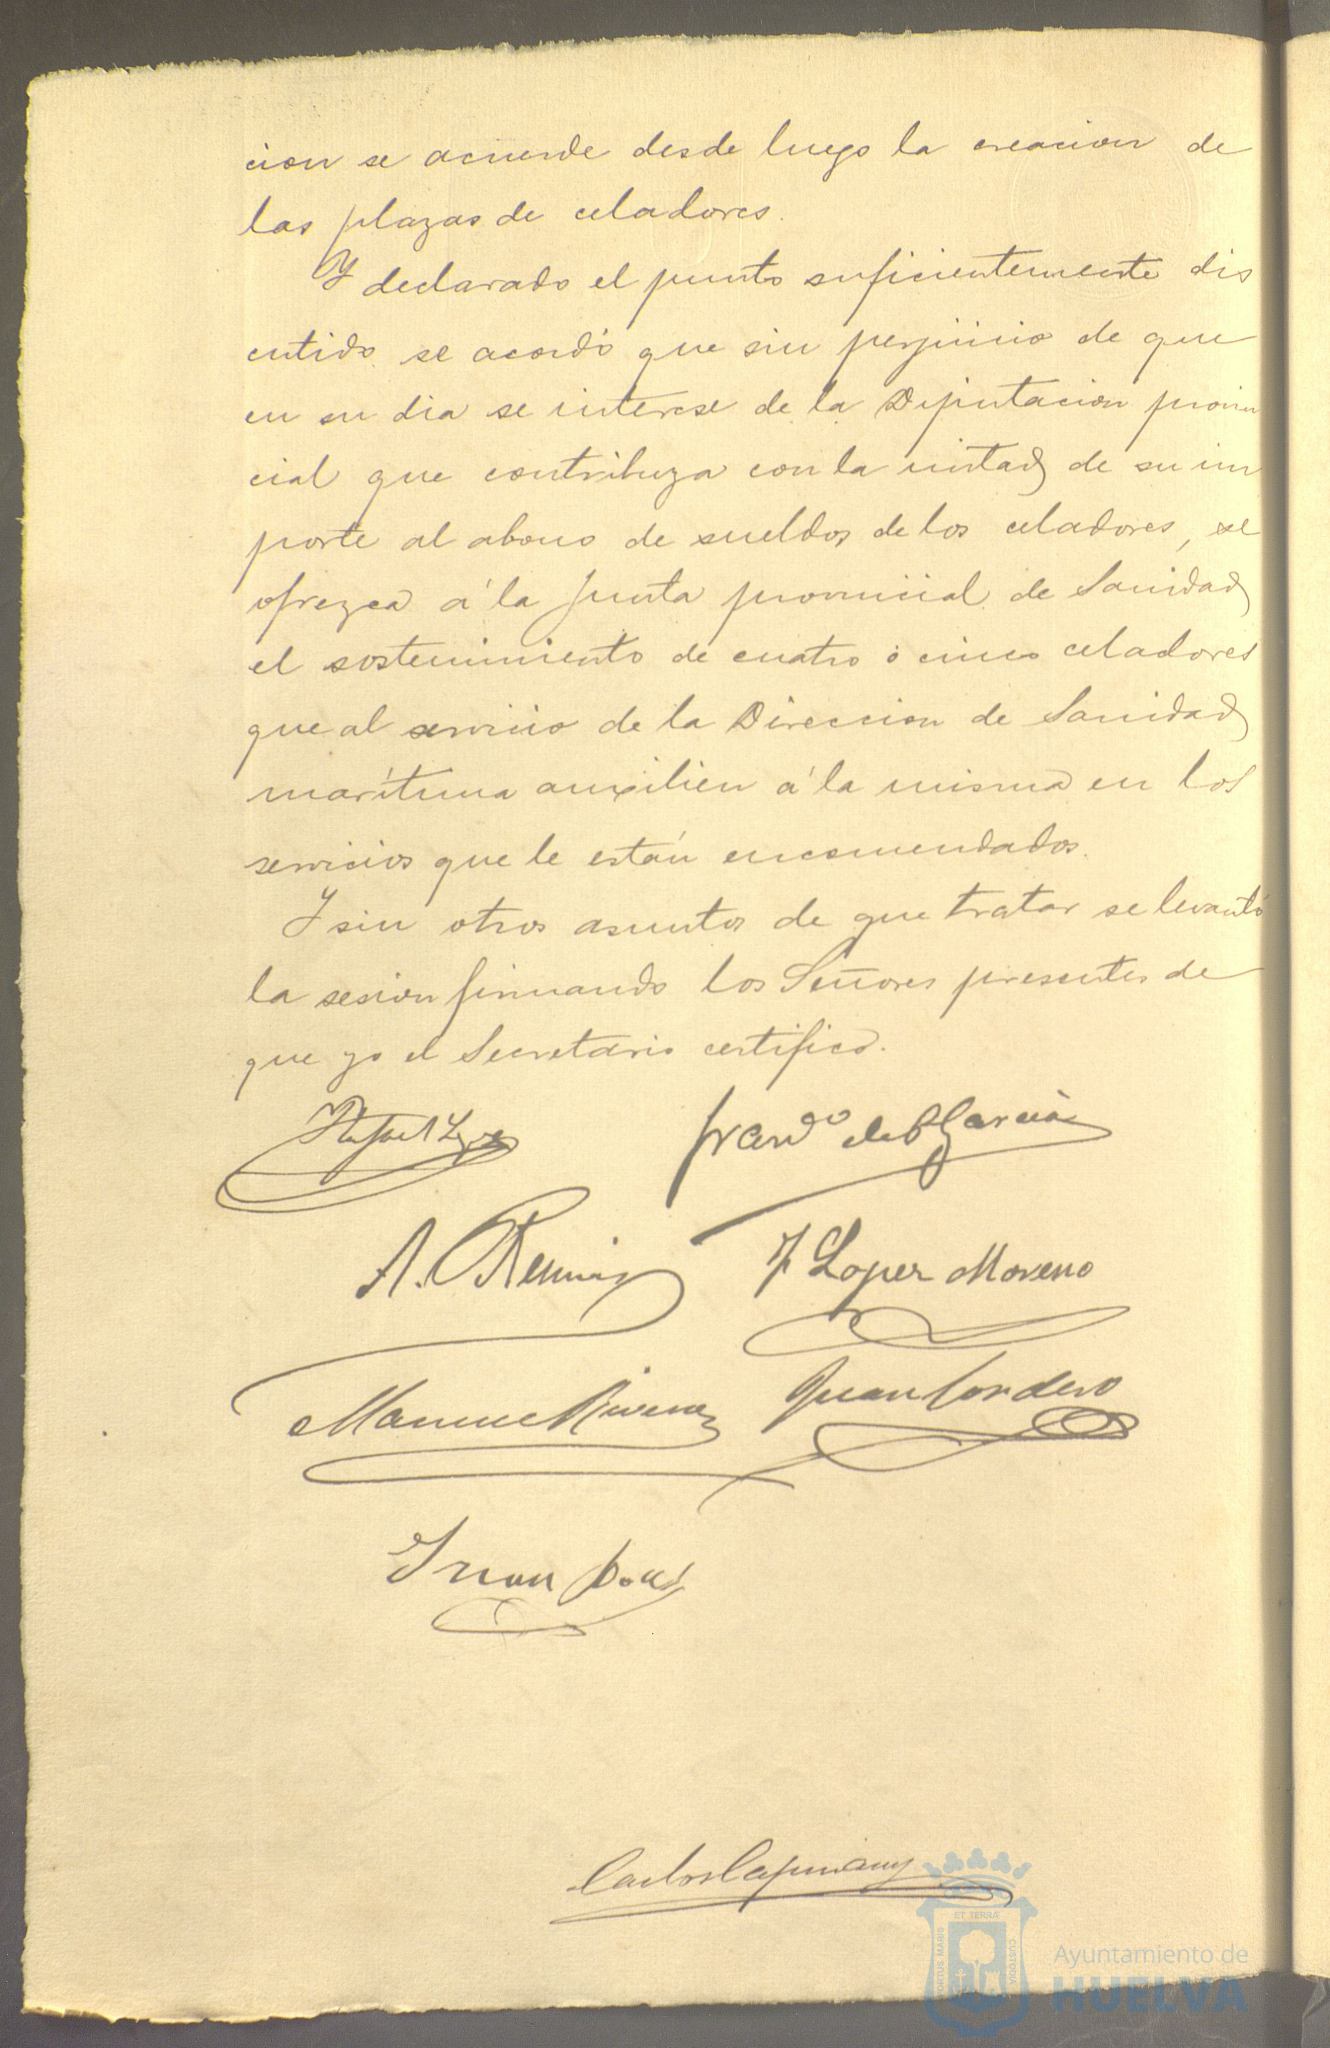 cion se acuerde desde luego la creacion de
las plazas de celadores.
Y declarado el punto suficientemente dis
cutido se acordó que sin perjuicio de que
en su dia se interese de la Diputacion provin
cial que contribuya con la mitad de su im
porte al abono de sueldos de los celadores, se
ofrezca á la Junta provincial de Sanidad
el sostenimiento de cuatro ó cinco celadores
que al servicio de la Direccion de Sanidad
marítima auxilien á la misma en los
servicios que le están encomendados.
Y sin otros asuntos de que tratar se levantó
la sesion firmando los Señores presentes de
que yo el Secretario certifico.
Rafael
Garcia
A.
F Lopez Moreno
Juan Cordero
Juan
Carlos
ET TERRÆ
PORTUS MARIS
CUSTODIA
Ayuntamiento de
HUELVA